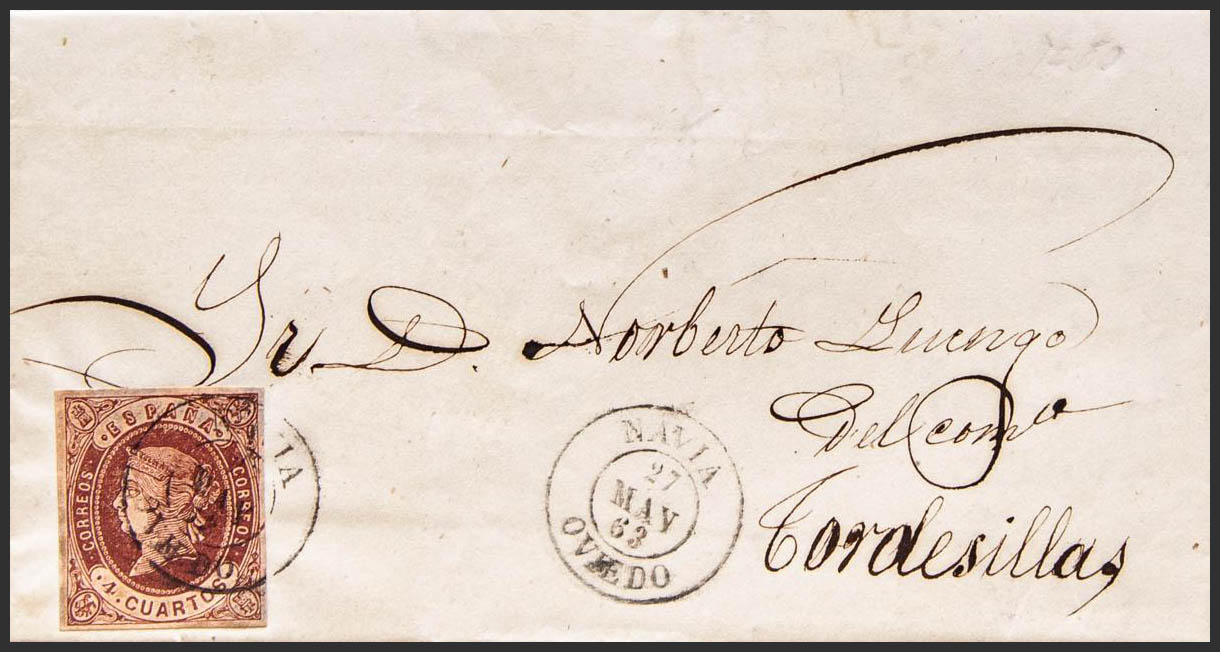 Sr. D. Norberto Luengo
Del comº
Tordesillas
ESPAÑA
CORREOS
CORREOS
4 CUARTOS
NAVIA
27
MAY
63
OVIEDO